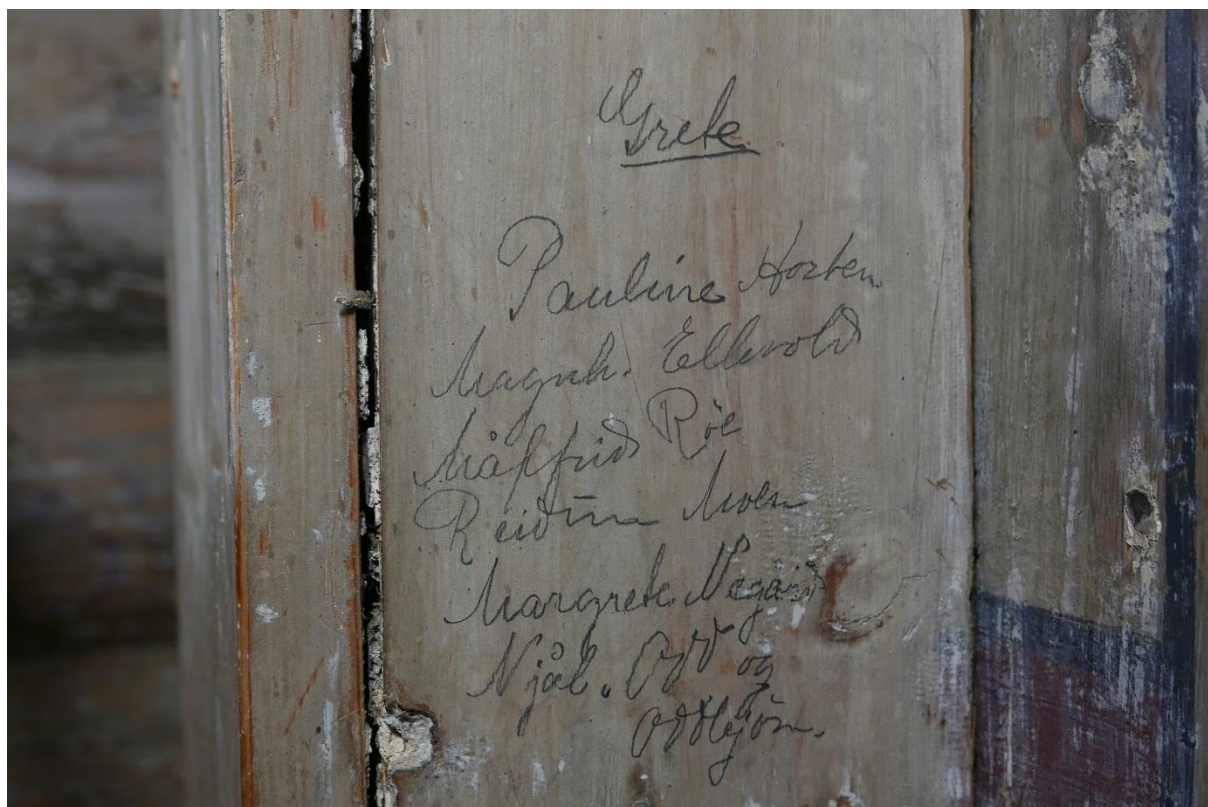 Grete
Pauline Horten.
Magnh. Ellevold
Målfrid Røe
Reidun Moen
Margrete Negård
Njål. Odd og
Oddbjørn.